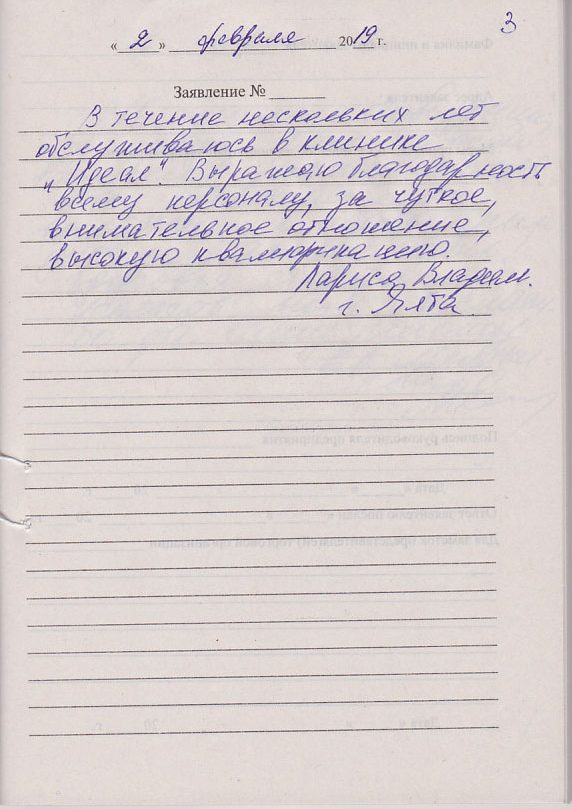 3
« 2 » февраля 2019 г.
Заявление №
В течение нескольких лет
обслуживаюсь в клинике
"Идеал". Выражаю благодарность
всему персоналу, за чуткое,
внимательное отношение,
высокую квалификацию.
Лариса Владим.
г. Ялта.